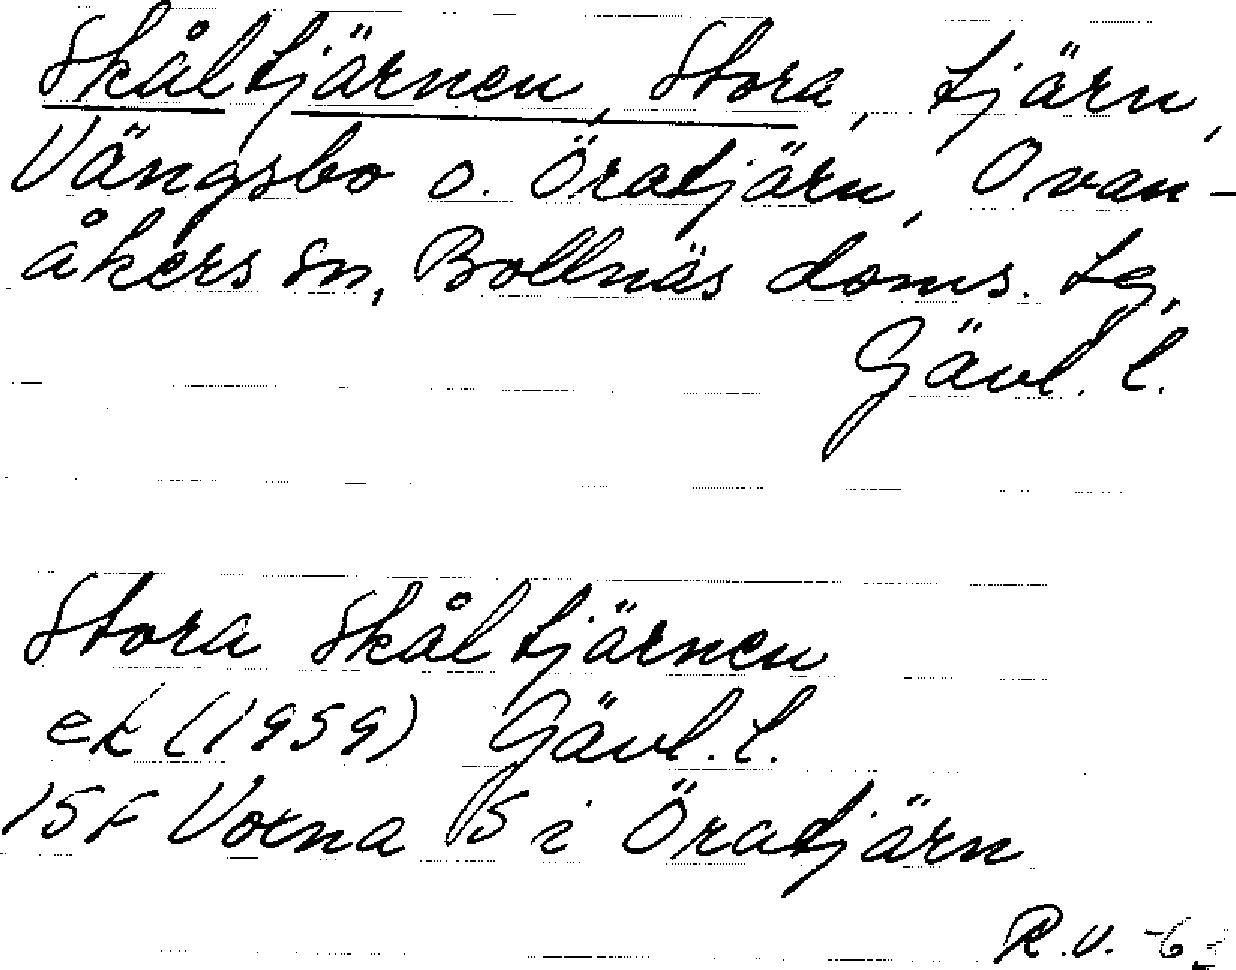 Skåltjärnen, Stora, tjärn,
Vängsbo o. Öratjärn, Ovan-
åkers sn, Bollnäs doms. tg,
Gävl. l.
Stora Skåltjärnen
ek (1959) Gävl. l.
15F Voxna S i Öratjärn
R.V.